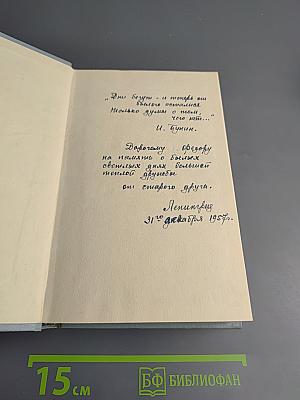 „Дни бегут – и теперь от
былого осталися
только думы о том,
чего нет..."
И. Бунин.
Дорогому Федору
на память о былых
светлых днях большой
теплой дружбы
от старого друга.
Ленинград
31го декабря 1957г.
15 см
БФ БИБЛИОФАН